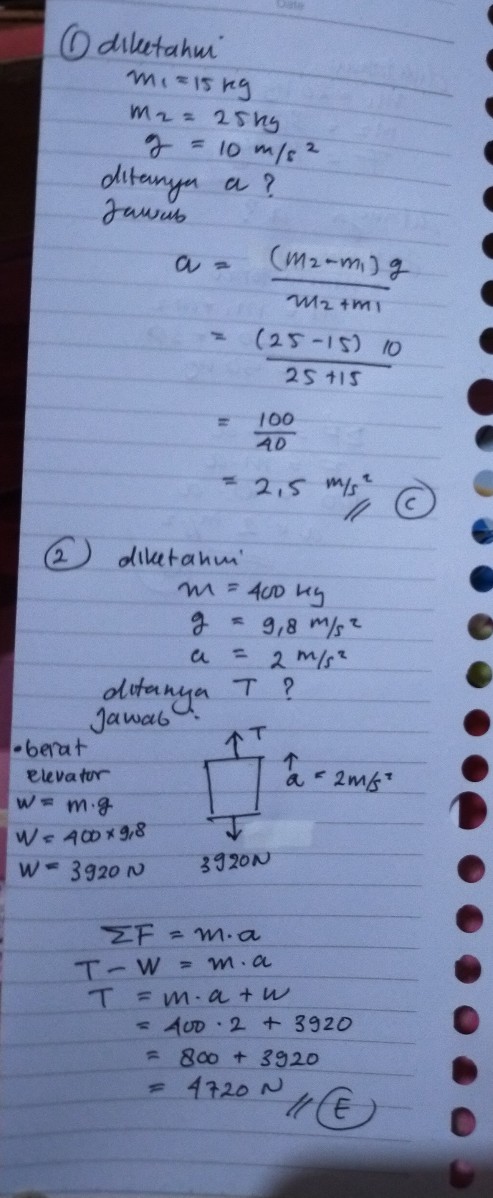 Date
① diketahui
m₁ = 15 kg
m₂ = 25 kg
g = 10 m/s²
ditanya a ?
Jawab
a = (m₂-m₁) g / m₂+m₁
= (25-15) 10 / 25+15
= 100 / 40
= 2,5 m/s² // Ⓒ
② diketahui
m = 400 kg
g = 9,8 m/s²
a = 2 m/s²
ditanya T ?
Jawab :
• berat
elevator
W = m.g
W = 400×9,8
W = 3920 N
T
a = 2m/s²
3920N
ΣF = m.a
T - W = m.a
T = m.a + w
= 400 . 2 + 3920
= 800 + 3920
= 4720 N // Ⓔ